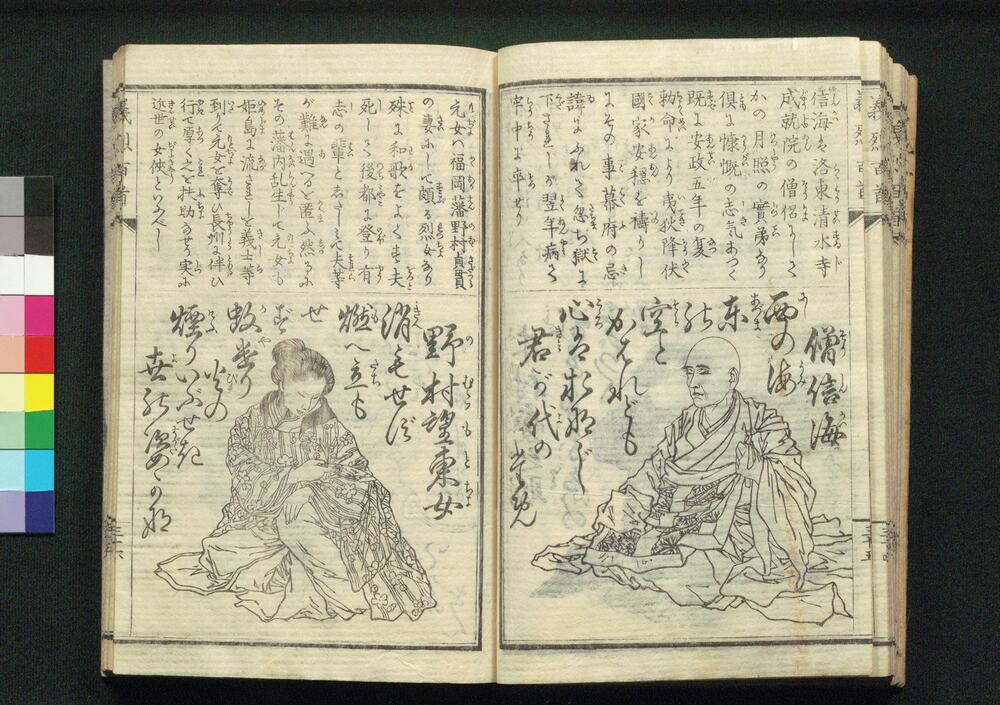 義烈百首
信海は洛東清水寺
成就院の僧侶にして
かの月照の實弟なり
倶に慷慨の志気あつく
既に安政五年の夏
勅命により夷狄降伏
國家安穏を祷りし
にその事幕府の忌
諱にふれて忽ち獄に
下されしが翌年病て
牢中に卒せり
僧信海
西の海
東の
空と
かはれども
心は於那じ
君が代の
元女の福岡藩野村貞貫
の妻にして頗る烈女なり
殊に和歌をよくす夫
死して後都に登り有
志の輩と
が難に遇へるを匿ふ然るに
その藩内乱生して元女も
姫島に流されしを義士等
到りて元女を奪ひ長州に伴ひ
行て厚く之を扶助なせり実に
近世の女侠といふべし
野村望東女
消もせず
燃へ立も
せ
ず
蚊遣り
火の
煙りいぶせき
世の姿かな
義烈百首